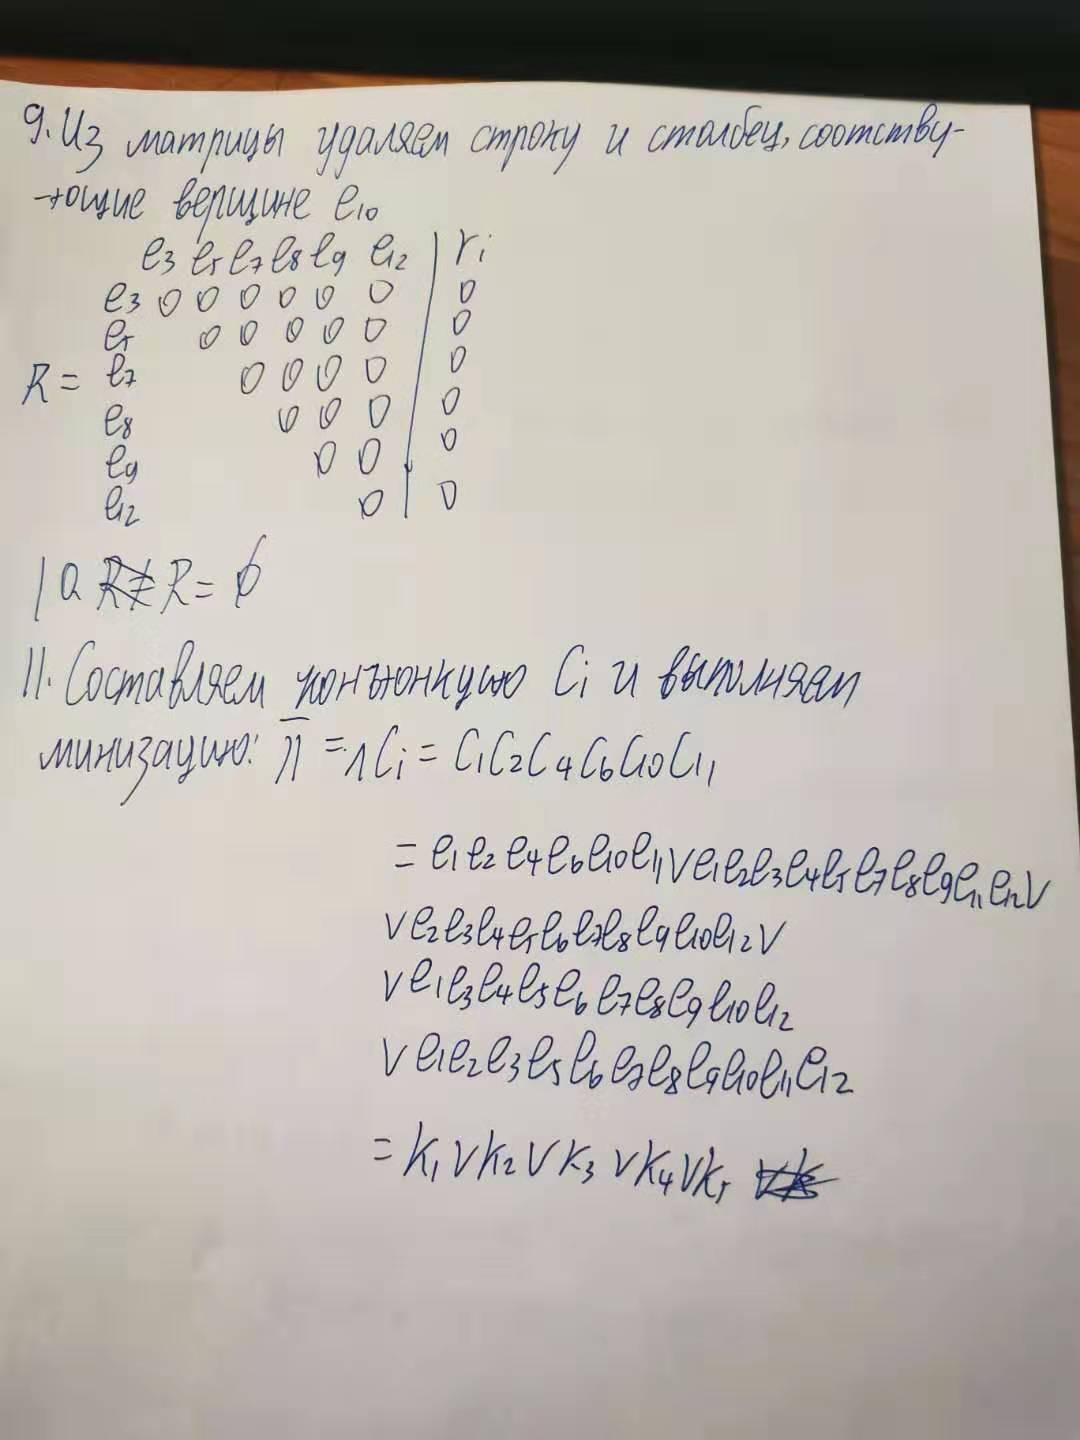 9. Из матрицы удаляем строку и столбец, соотству-
-ющие верщине e10
e3 e5 e7 e8 e9 e12 | ri
e3 0 0 0 0 0 0 | 0
e5 0 0 0 0 0 | 0
R = e7 0 0 0 0 | 0
e8 0 0 0 | 0
e9 0 0 | 0
e12 0 | 0
10. R = ϕ
11. Составляем конъюнкцию Ci и выполняем
минизацию: П̅ = ∧Ci = C1C2C4C6C10C11
= e1e2e4e6e10e11∨e1e2e3e4e5e7e8e9e11e12∨
∨e2e3e4e5e6e7e8e9e10e12∨
∨e1e3e4e5e6e7e8e9e10e12
∨e1e2e3e5e6e7e8e9e10e11e12
= k1∨k2∨k3∨k4∨k5